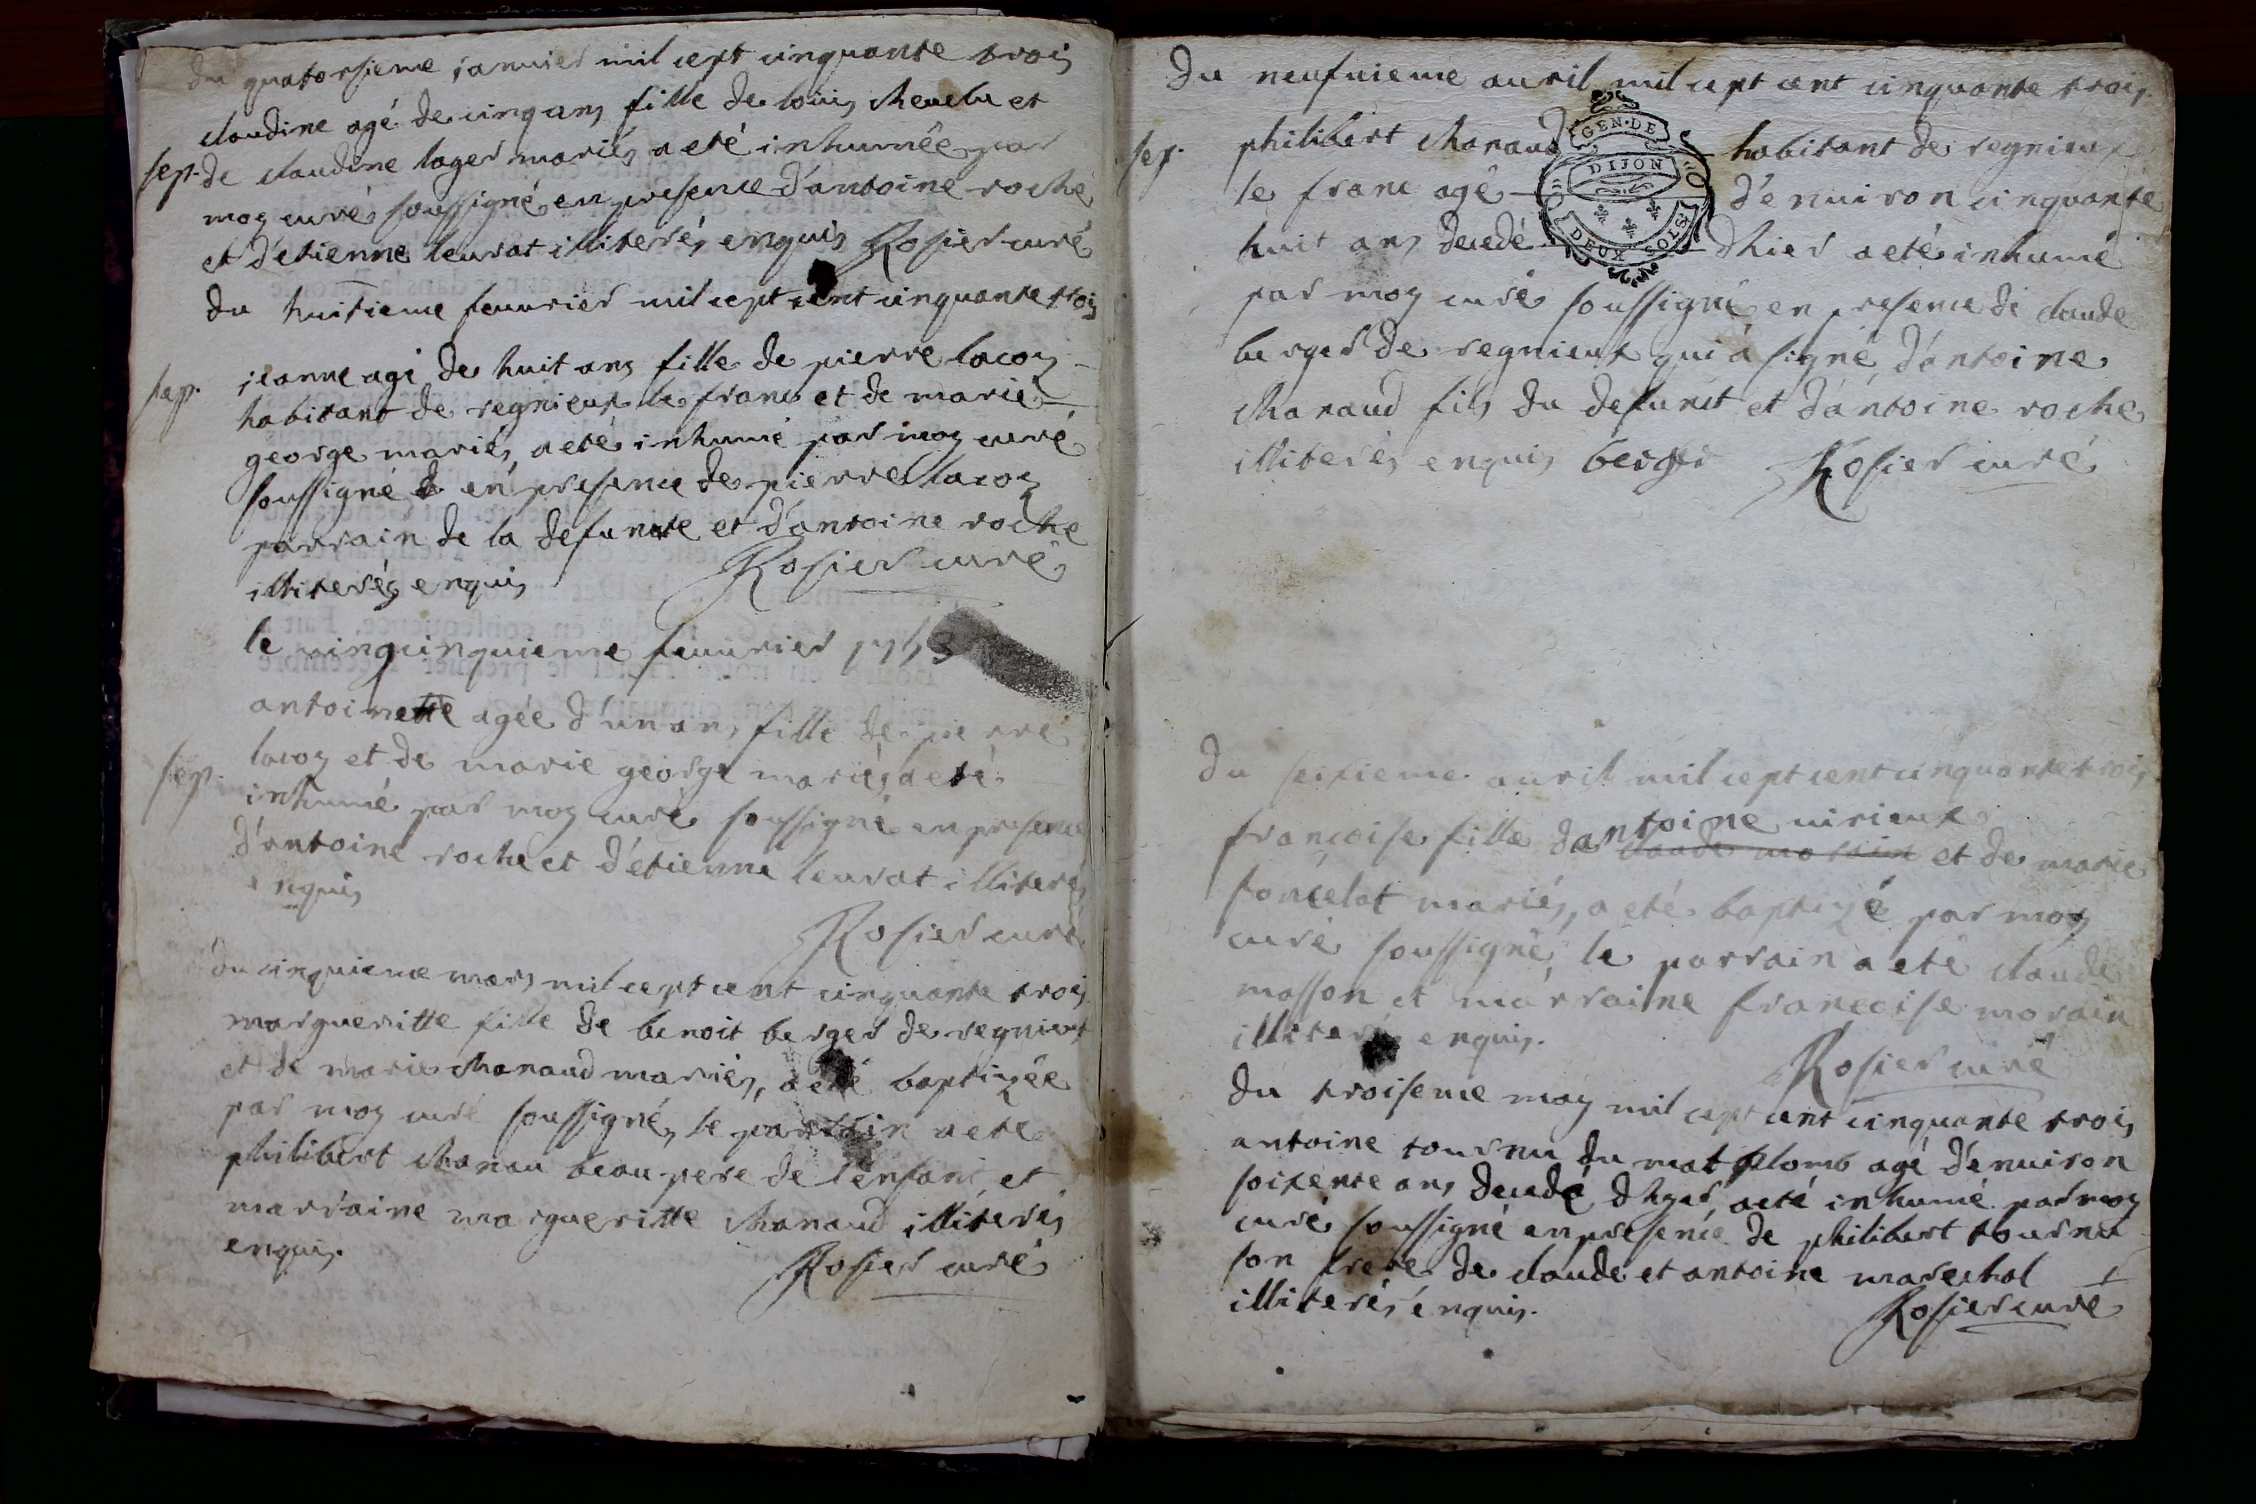 du quatorsieme januier mil cept cinquante trois
claudine agé de cinq ans fille de louis cheuelu et
sep. de claudine lager mariés a eté inhumée par
moy curé soussigné en presence d'antoine roche
et d'etienne leurat illiterés enquis Rosier curé
du huitieme feuurier mil cept cent cinquante trois
sep. jeanne agé de huit ans fille de pierre lacoz
habitant de regnieux le franc et de marie
george mariés a eté inhumé par moy curé
soussigné en presence de pierre lacoz
parrain de la defunte et d'antoine roche
illiterés enquis Rosier curé
le uingcinquieme feuurier 1753
antoinette agée d'un an fille de pierre
sep. lacoz et de marie george mariés a eté
inhumé par moy curé soussigné en presence
d'antoine roche et d'etienne leurat illiterés
enquis
Rosier curé
du cinquieme mars mil cept cent cinquante trois
margueritte fille de benoit berger de regnieux
et de marie chanaud mariés, a eté baptizée
par moy curé soussigné, le parrain a eté
philibert chanau beau pere de l'enfant et
marraine margueritte chanaud illiterés
enquis.
Rosier curé
du neufuieme auril mil cept cent cinquante trois
sep. philibert chanaud habitant de regnieux
le franc agé d'enuiron cinquante
huit ans decedé d'hier a eté inhumé
GEN·DE
DIJON
DEUX SOLS
par moy curé soussigné en presence de claude
berger de regnieux qui a signé, d'antoine
chanaud fils du defunct et d'antoine roche
illiterés enquis berger Rosier curé
du seixieme auril mil cept cent cinquante trois
françoise fille d'antoine uirieux et de marie
foncelat mariés, a eté baptizé par moy
curé soussigné, le parrain a eté claude
masson et marraine francoise morain
illiterés enquis.
Rosier curé
du troiseme may mil cept cent cinquante trois
antoine tournu du mat plomb agé d'enuiron
soixente ans decedé d'hyer, a eté inhumé par moy
curé soussigné en presence de philibert tournu
son frere de claude et antoine marechal
illiterés enquis.
Rosier curé